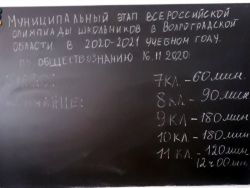 МУНИЦИПАЛЬНЫЙ ЭТАП ВСЕРОССИЙСКОЙ
ОЛИМПИАДЫ ШКОЛЬНИКОВ В ВОЛГОГРАДСКОЙ
ОБЛАСТИ В 2020-2021 УЧЕБНОМ ГОДУ
ПО ОБЩЕСТВОЗНАНИЮ 16.11.2020
7 КЛ. - 60 МИН
8 КЛ. - 90 МИН
9 КЛ - 180 МИН
10 КЛ - 180 МИН
11 КЛ. - 120 МИН
12 Ч 00 МИН